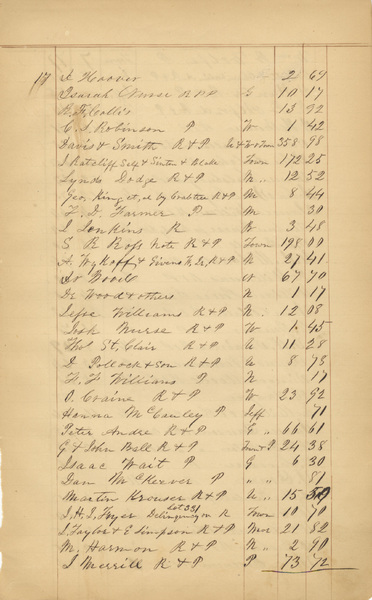 171 D Hoover 2 69
Isaiah Nurse R & P G 10 17
R. F. Collis 13 92
C. S. Robinson P W 1 42
Davis & Smith R & P & Town 358 98
J Ratcliff Self & Town 172 25
Lynds Dodge R & P N „ 12 52
Geo King et al by Crabtree R & P M 8 44
F. D. Farmer P — M 30
L Jonkins R R 3 48
S R Ross Note R & P Town 198 00
A. Wykoff & R & P N 27 41
Dr Woods 67 70
De Wood & others N 1 17
Jesse Williams R & P N „ 12 08
Isah Nurse R & P W 1 45
Thos St, Clair R & P G 11 28
D Pollock & Son R & P G 8 73
W. W Williams P N 17
O. Craine R & P W 23 92
Hanna McCauley P Jeff 71
Peter Andre R & P G „ 66 61
G & John Ball R & P P 24 38
Isaac Wait P G 6 30
Dan McKeever P „ „ 81
Martin Krouser R & P „ 15
Lot 351
J. H. S. Fryer Delinquency on R Town 10 70
S. Taylor & E Simpson R & P Mor 21 82
M. Harmon R & P N „ 2 90
J Merrill R & P P 73 72